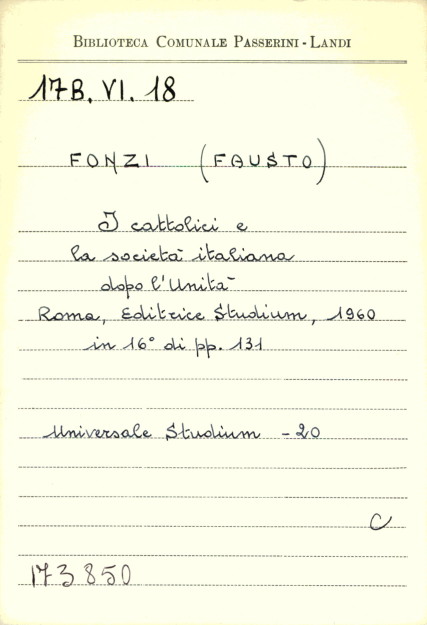 BIBLIOTECA COMUNALE PASSERINI - LANDI
17B. VI. 18
FONZI (FAUSTO)
I cattolici e
la società italiana
dopo l'Unità
Roma, Editrice Studium, 1960
in 16° di pp. 131
Universale Studium - 20
C
173850